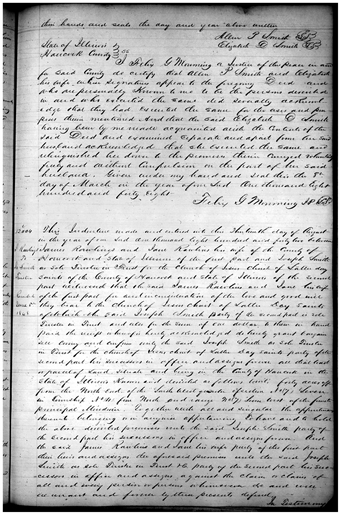 their hands and seals the day and year above written
Allen T Smith
Elizabeth D Smith
State of Illinois
Hancock County
I Foley G Manning a Justice of the Peace in and
for said County do certify that Allen T Smith and Elizabeth
his wife whose signatures appear to the foregoing Deed and
who are personally known to me to be the persons described
in and who executed the same did severally acknowl
edge that they had executed the same for the uses and pur
poses therein mentioned And that the said Elizabeth D Smith
having been by me made acquainted with the contents of the
said Deed and examined separate and apart from her
husband acknowledged that she executed the same and
relinquished her dower to the premises therein
freely and without compulsion on the part of her said
husband Given under my hand and seal this the
day of March in the year of our Lord one thousand eight
hundred and forty eight
Foley G Manning
This Indenture made and entered into this thirteenth day of August
in the year of our Lord one thousand eight hundred and forty two between
James Rawlins and Jane Rawlins his wife of the County of
Hancock and State of Illinois of the first part and Joseph Smith
as sole Trustee in Trust for the Church of Jesus Christ of Latter Day
Saints of the County of Hancock and State of Illinois of the second
part witnesseth that the said James Rawlins and Jane his wife
of the first part for and in consideration of the love and good will
they bear to the Church of Jesus Christ of Latter Day Saints
the said Joseph Smith party of the second part as sole
Trustee in Trust and also for the sum of one dollar to them in hand
paid the receipt whereof is hereby acknowledged do hereby grant bargain
sell convey and confirm unto the said Joseph Smith as sole Trustee
in Trust for the Church of Jesus Christ of Latter Day Saints party of the
second part his successors in office and assigns forever all that
parcel of land situate and being in the County of Hancock in the
State of Illinois known and described as follows forty acres off
from the North end of the South West quarter of Section
in township No 4 North and range No 7 West of the fourth
principal Meridian Together with all and singular the appurtenances
thereunto belonging or in anywise appertaining To have and to hold
the above described premises unto the said Joseph Smith party of
the second part his successors in office and assigns forever And
the said James Rawlins and Jane his wife party of the first part
their heirs and assigns the aforesaid premises unto the said Joseph
Smith as sole Trustee in Trust the party of the second part his suc
cessors in office and assigns against the claim or claims of
all and every person or persons whomsoever do and will
warrant and forever by these presents defend
In Testimony